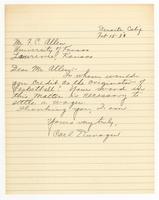 Dinuba, Calif.
Feb. 15-38
Mr. F. C. Allen
University of Kansas
Lawrence, Kansas
Dear Mr. Allen:
To whom would
you credit as the originator of
Basketball? Your word in
this matter is necessary to
settle a wager.
Thanking you, I am
Yours very truly,
Carl